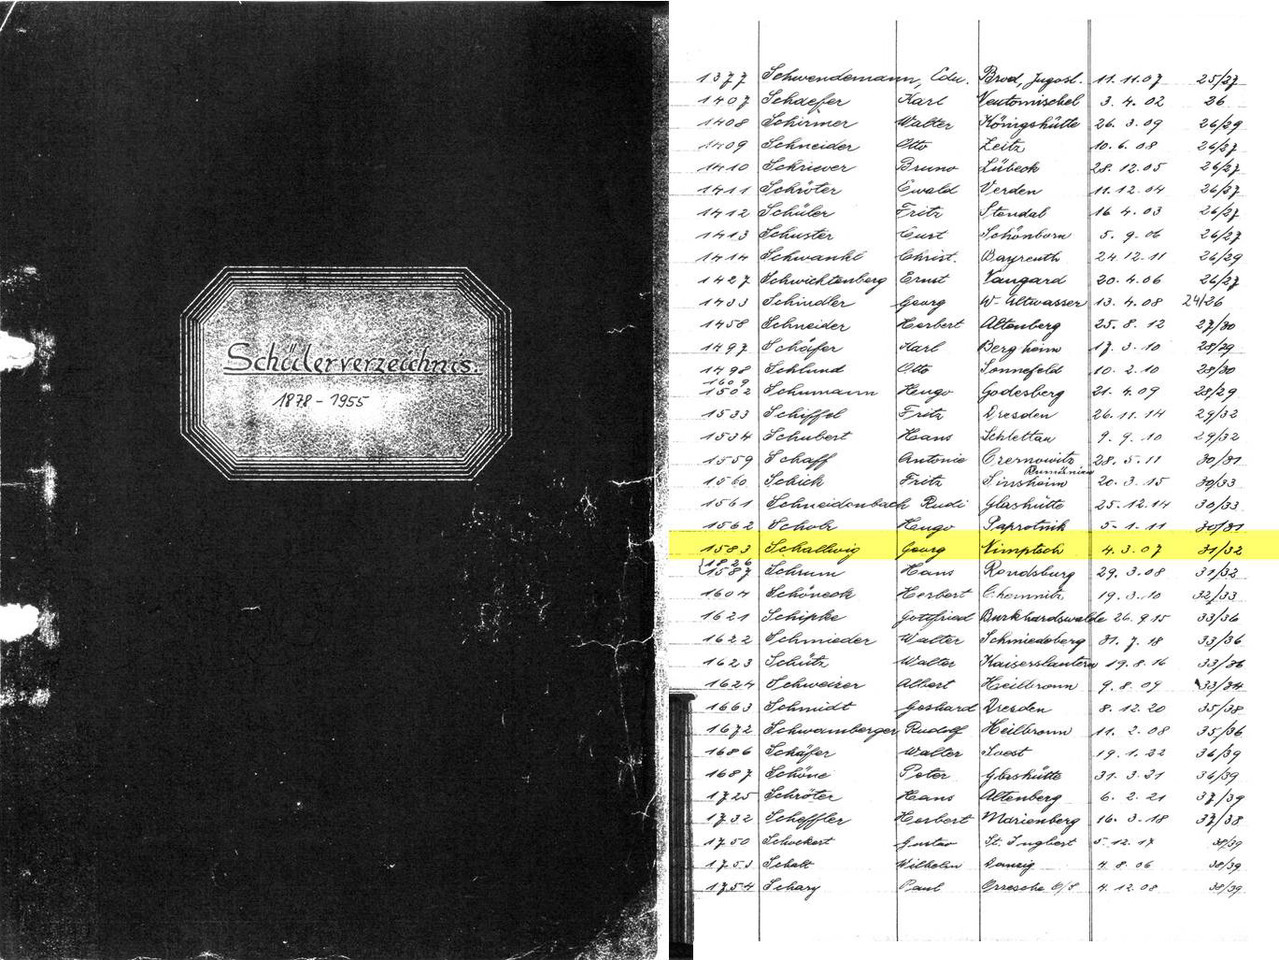 Schülerverzeichnis.
1878 - 1955
1377 Schwendemann, Edu. Brod, Jugosl. 11.11.07 25/27
1407 Schaefer Karl Neutomischel 3.4.02 26
1408 Schirmer Walter Königshütte 26.3.09 26/29
1409 Schneider Otto Zeitz 10.6.08 26/27
1410 Schriever Bruno Lübeck 28.12.05 26/27
1411 Schröter Ewald Verden 11.12.04 26/27
1412 Schüler Fritz Stendal 16.4.03 26/27
1413 Schuster Curt Schönborn 5.9.06 26/27
1414 Schwankl Christ. Bayreuth 24.12.11 26/29
1427 Schwichtenberg Ernst Naugard 20.4.06 26/27
1433 Schindler Georg W-Altwasser 13.4.08 24/26
1458 Schneider Herbert Altenberg 25.8.12 27/30
1497 Schäfer Karl Bergheim 17.3.10 28/29
1498 Schlund Otto Sonnefeld 10.2.10 28/30
1609
1502 Schumann Hugo Godesberg 21.4.09 28/29
1533 Schiffel Fritz Dresden 26.11.14 29/32
1534 Schubert Hans Schlettau 9.9.10 29/32
1559 Schaff Antonie Czernowitz 28.5.11 30/31
Rumänien
1560 Schick Fritz Sinsheim 20.3.15 30/33
1561 Schneidenbach Rudi Glashütte 25.12.14 30/33
1562 Scholz Hugo Paprotnik 5.1.11 30/31
1583 Schallwig Georg Nimptsch 4.3.07 31/32
1826
1587 Schrum Hans Rendsburg 29.3.08 31/32
1604 Schöneck Herbert Chemnitz 19.3.10 32/33
1621 Schipke Gottfried Burkhardswalde 26.9.15 33/36
1622 Schmieder Walter Schmiedeberg 31.7.18 33/36
1623 Schütz Walter Kaiserslautern 19.8.16 33/36
1624 Schweizer Albert Heilbronn 9.8.09 33/34
1663 Schmidt Gerhard Dresden 8.12.20 35/38
1672 Schwamberger Rudolf Heilbronn 11.2.08 35/36
1686 Schäfer Walter Soest 19.1.22 36/39
1687 Schöne Peter Glashütte 31.3.21 36/39
1725 Schröter Hans Altenberg 6.2.21 37/39
1732 Scheffler Herbert Marienberg 16.3.18 37/38
1750 Schockert Gustav St. Ingbert 5.12.17 38/39
1753 Schatt Wilhelm Danzig 4.8.06 38/39
1754 Schary Paul Orzesche O/S 4.12.08 38/39